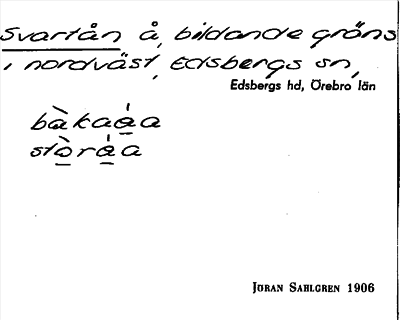 Svartån å, bildande gräns
i nordväst, Edsbergs sn,
Edsbergs hd, Örebro län
bàkaáa
stòráa
Jöran Sahlgren 1906